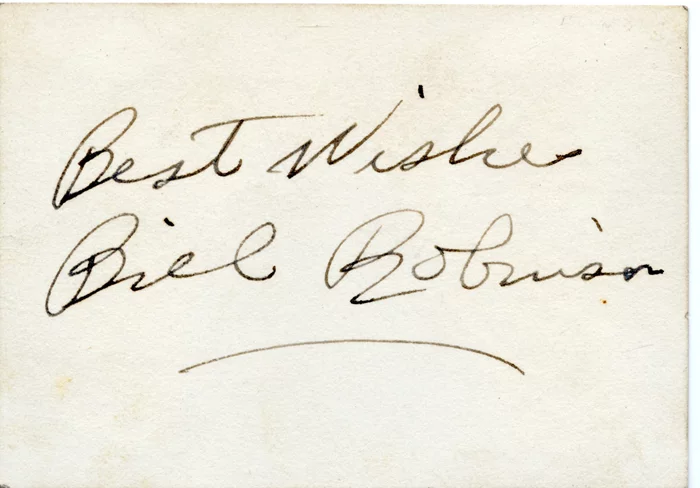 Best Wishe
Bill Robinson